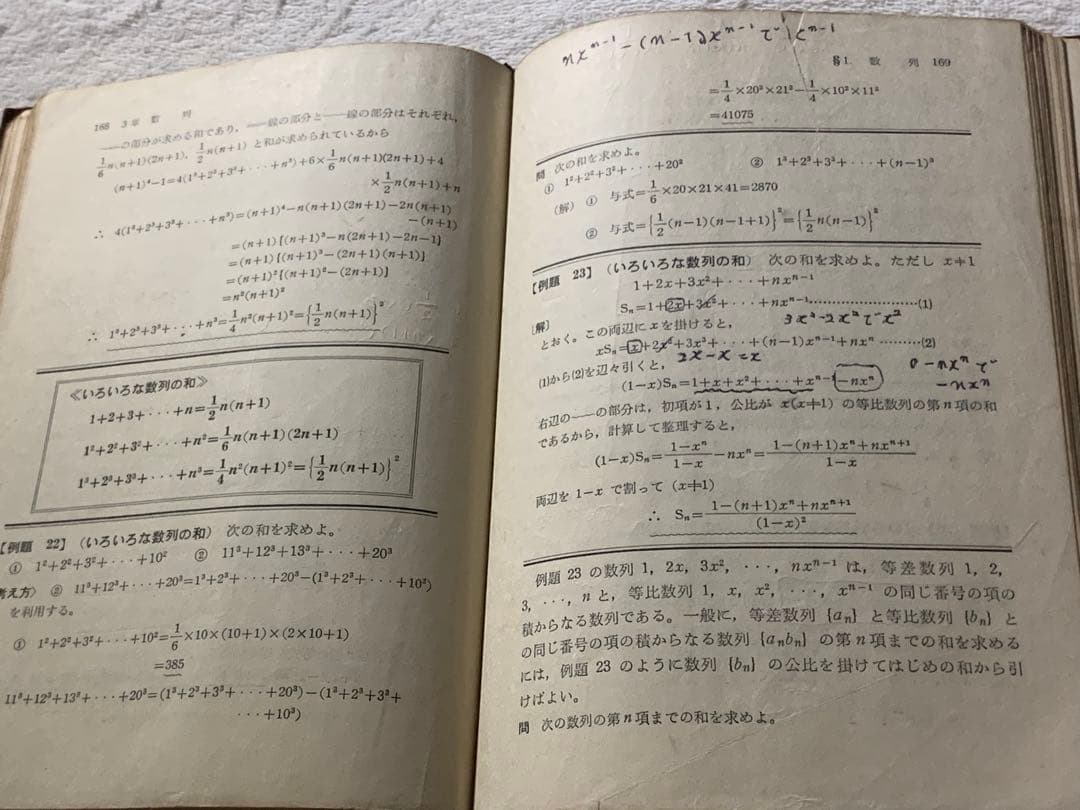 168 3章 数 列
――の部分が求める和であり，――線の部分と――線の部分はそれぞれ，
1/6 n(n+1)(2n+1)，1/2 n(n+1) と和が求められているから
(n+1)⁴−1=4(1³+2³+3³+···+n³)+6×1/6 n(n+1)(2n+1)+4
×1/2 n(n+1)+n
∴ 4(1³+2³+3³+···+n³)=(n+1)⁴−n(n+1)(2n+1)−2n(n+1)
−(n+1)
=(n+1){(n+1)³−n(2n+1)−2n−1}
=(n+1){(n+1)³−(2n+1)(n+1)}
=(n+1)²{(n+1)²−(2n+1)}
=n²(n+1)²
∴ 1³+2³+3³+···+n³=1/4 n²(n+1)²={1/2 n(n+1)}²
≪いろいろな数列の和≫
1+2+3+···+n=1/2 n(n+1)
1²+2²+3²+···+n²=1/6 n(n+1)(2n+1)
1³+2³+3³+···+n³=1/4 n²(n+1)²={1/2 n(n+1)}²
【例題 22】（いろいろな数列の和） 次の和を求めよ。
① 1²+2²+3²+···+10² ② 11³+12³+13³+···+20³
考え方〉 ② 11³+12³+···+20³=1³+2³+···+20³−(1³+2³+···+10³)
を利用する。
① 1²+2²+3²+···+10²=1/6×10×(10+1)×(2×10+1)
=385
11³+12³+13³+···+20³=(1³+2³+3³+···+20³)−(1³+2³+3³+
···+10³)
§1. 数 列 169
=1/4×20²×21²−1/4×10²×11²
=41075
問 次の和を求めよ。
① 1²+2²+3²+···+20² ② 1³+2³+3³+···+(n−1)³
（解） ① 与式=1/6×20×21×41=2870
② 与式={1/2(n−1)(n−1+1)}²={1/2 n(n−1)}²
【例題 23】（いろいろな数列の和） 次の和を求めよ。ただし x≠1
1+2x+3x²+···+nxⁿ⁻¹
〔解〕 Sₙ=1+2x+3x²+···+nxⁿ⁻¹························(1)
とおく。この両辺に x を掛けると， 3x²−2x²でx²
xSₙ=x+2x²+3x³+···+(n−1)xⁿ⁻¹+nxⁿ ·········(2)
2x−x=x
(1)から(2)を辺々引くと， 0−nxⁿで
(1−x)Sₙ=1+x+x²+···+xⁿ⁻¹−nxⁿ −nxⁿ
右辺の――の部分は，初項が 1，公比が x(x≠1) の等比数列の第n項の和
であるから，計算して整理すると，
(1−x)Sₙ=(1−xⁿ)/(1−x)−nxⁿ=(1−(n+1)xⁿ+nxⁿ⁺¹)/(1−x)
両辺を 1−x で割って (x≠1)
∴ Sₙ=(1−(n+1)xⁿ+nxⁿ⁺¹)/(1−x)²
例題 23 の数列 1，2x，3x²，···，nxⁿ⁻¹ は，等差数列 1，2，
3，···，n と，等比数列 1，x，x²，···，xⁿ⁻¹ の同じ番号の項の
積からなる数列である。一般に，等差数列 {aₙ} と等比数列 {bₙ} と
の同じ番号の項の積からなる数列 {aₙbₙ} の第n項までの和を求める
には，例題 23 のように数列 {bₙ} の公比を掛けてはじめの和から引
けばよい。
問 次の数列の第n項までの和を求めよ。